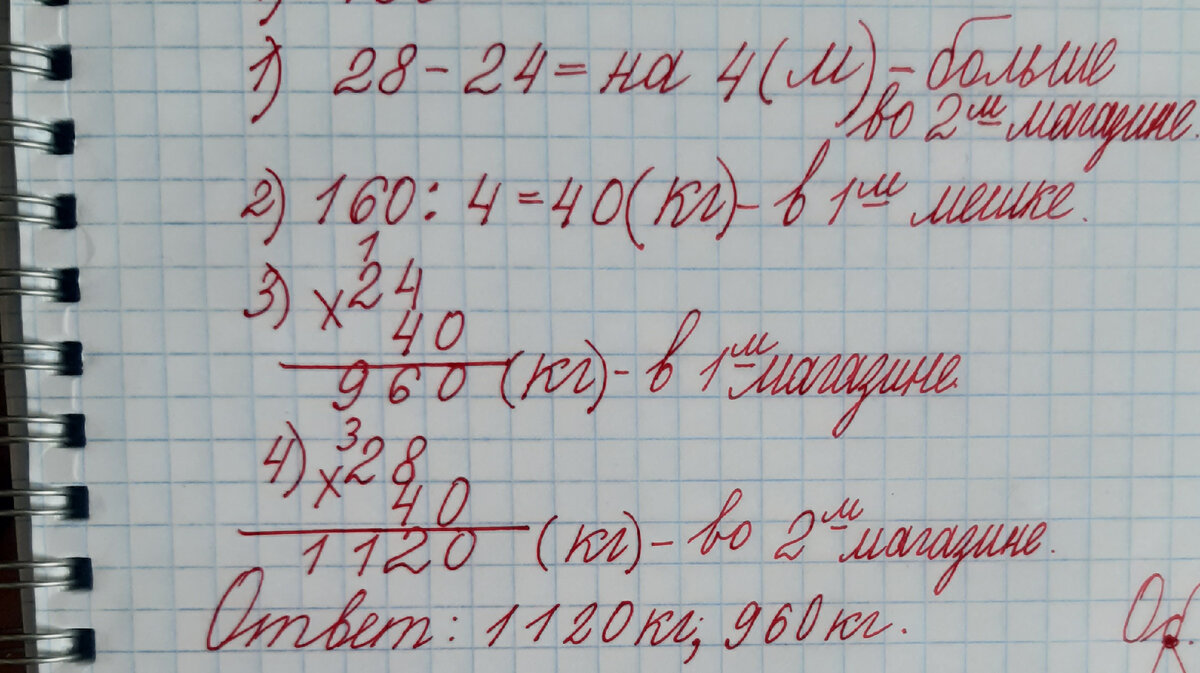 1) 28 - 24 = на 4 (м) - больше
во 2м магазине.
2) 160 : 4 = 40 (кг) - в 1м мешке.
1
3) х24
40
960 (кг) - в 1м магазине.
3
4) х28
40
1120 (кг) - во 2м магазине.
Ответ: 1120 кг; 960 кг.